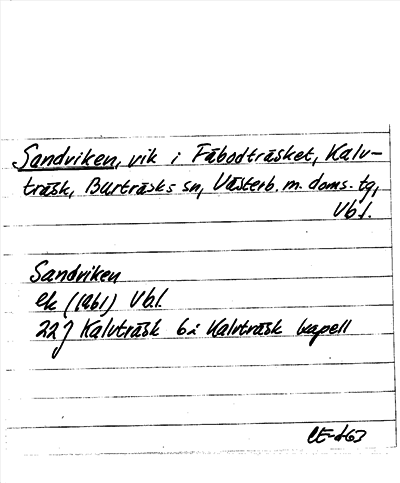 Sandviken, vik i Fäbodträsket, Kalv-
träsk, Burträsks sn, Västerb. m. doms. tg,
Vbl.
Sandviken
ek (1961) Vbl.
22J Kalvträsk 6i Kalvträsk kapell